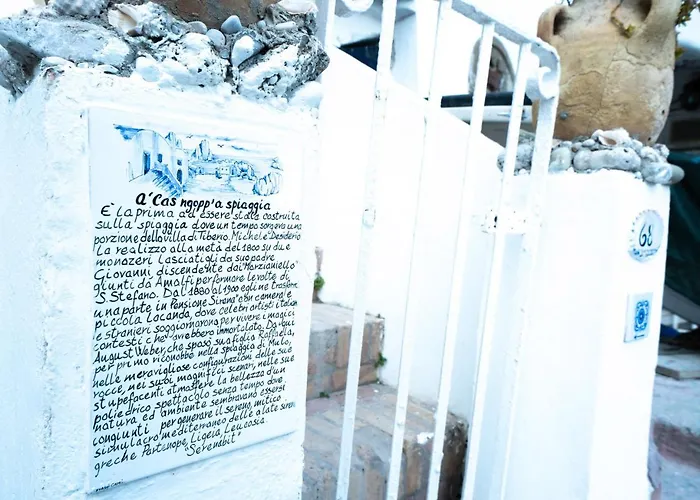 A' Cas ngopp'a spiaggia
È la prima ad essere stata costruita
sulla spiaggia dove un tempo sorgeva una
porzione della villa di Tiberio. Michele Desiderio
la realizzò alla metà del 1800 su due
monazeri lasciatigli da suo padre
Giovanni discendente dai "Marzianiello"
giunti da Amalfi per formare le volte di
S. Stefano. Dal 1880 al 1900 egli ne trasformò
una parte in "Pensione Sirena" con camere e
piccola locanda, dove celebri artisti italiani
e stranieri soggiornarono per vivere i magici
contesti che avrebbero immortalato. Da qui
August Weber, che sposò sua figlia Raffaela,
per primo riconobbe nella spiaggia di Mulo,
nelle meravigliose configurazioni delle sue
rocce, nei suoi magnifici scenari, nelle sue
stupefacenti atmosfere la bellezza d'un
poliedrico spettacolo senza tempo dove
natura ed ambiente sembravano essersi
congiunti per generare il sereno, mitico
simulacro mediterraneo delle alate sirene
greche Partenope, Ligeia, Leucosia.
"Serenabit"
68